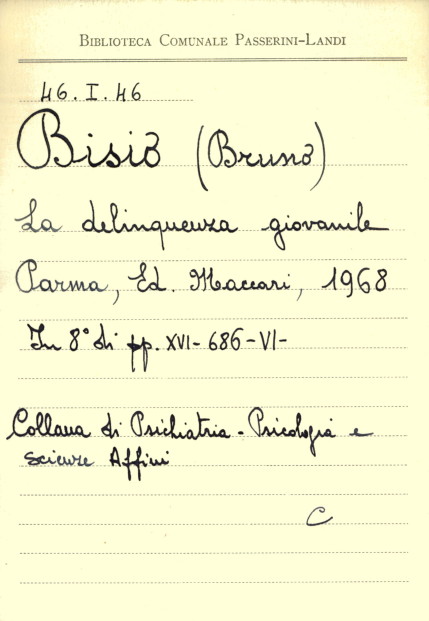 BIBLIOTECA COMUNALE PASSERINI-LANDI
46. I. 46
Bisio (Bruno)
La delinquenza giovanile
Parma, Ed. Maccari, 1968
In 8° di pp. XVI- 686-VI-
Collana di Psichiatria - Psicologia e
Scienze Affini
C